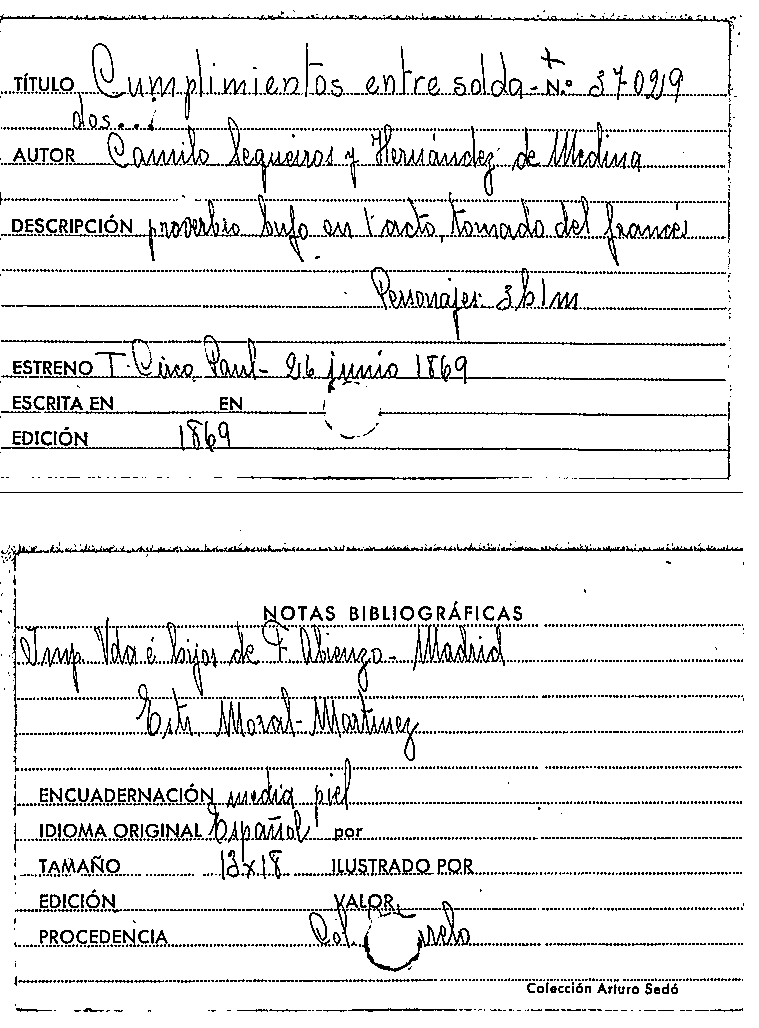 TÍTULO Cumplimientos entre solda- N.º 37029
dos...
AUTOR Camilo Sequeiros y Hernández de Medina
DESCRIPCIÓN proverbio bufo en 1 acto, tomado del francés
Personajes: 3 h 1 m
ESTRENO T. Circo Paul- 26 junio 1869
ESCRITA EN EN
EDICIÓN 1869
NOTAS BIBLIOGRÁFICAS
Imp Vda é hijos de F. Abienzo- Madrid
Estr. Moral-Martinez
ENCUADERNACIÓN media piel
IDIOMA ORIGINAL Español por
TAMAÑO 13x18 ILUSTRADO POR
EDICIÓN VALOR
PROCEDENCIA Col.
Colección Arturo Sedó